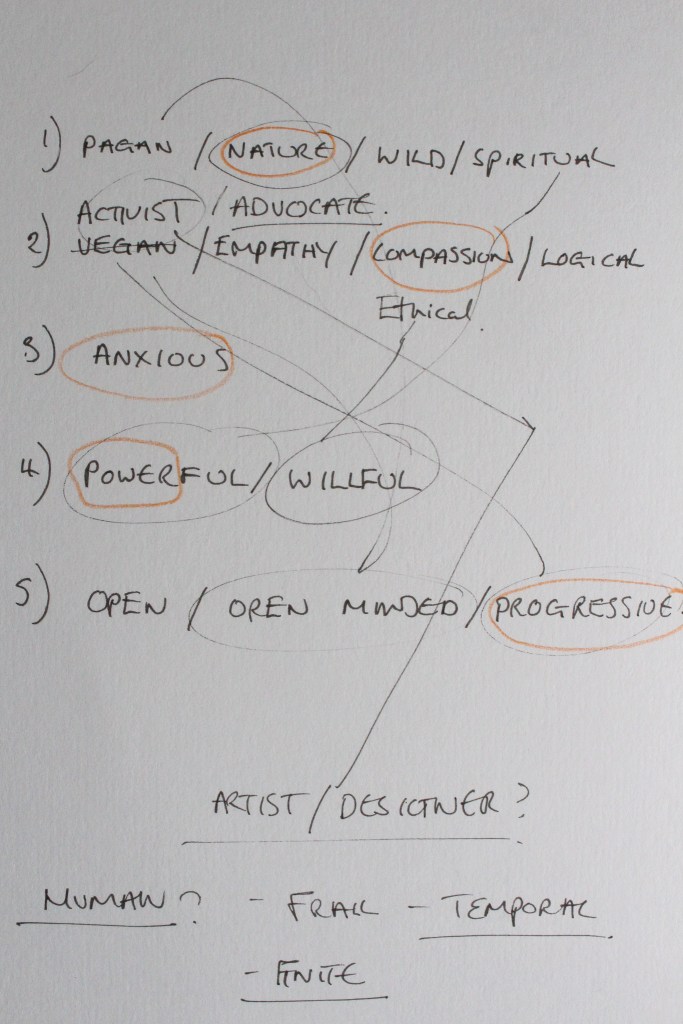 1) PAGAN / NATURE / WILD / SPIRITUAL
ACTIVIST / ADVOCATE.
2) VEGAN / EMPATHY / COMPASSION / LOGICAL
Ethical.
3) ANXIOUS
4) POWERFUL / WILLFUL
5) OPEN / OPEN MINDED / PROGRESSIVE.
ARTIST / DESIGNER?
HUMAN? - FRAIL - TEMPORAL
- FINITE